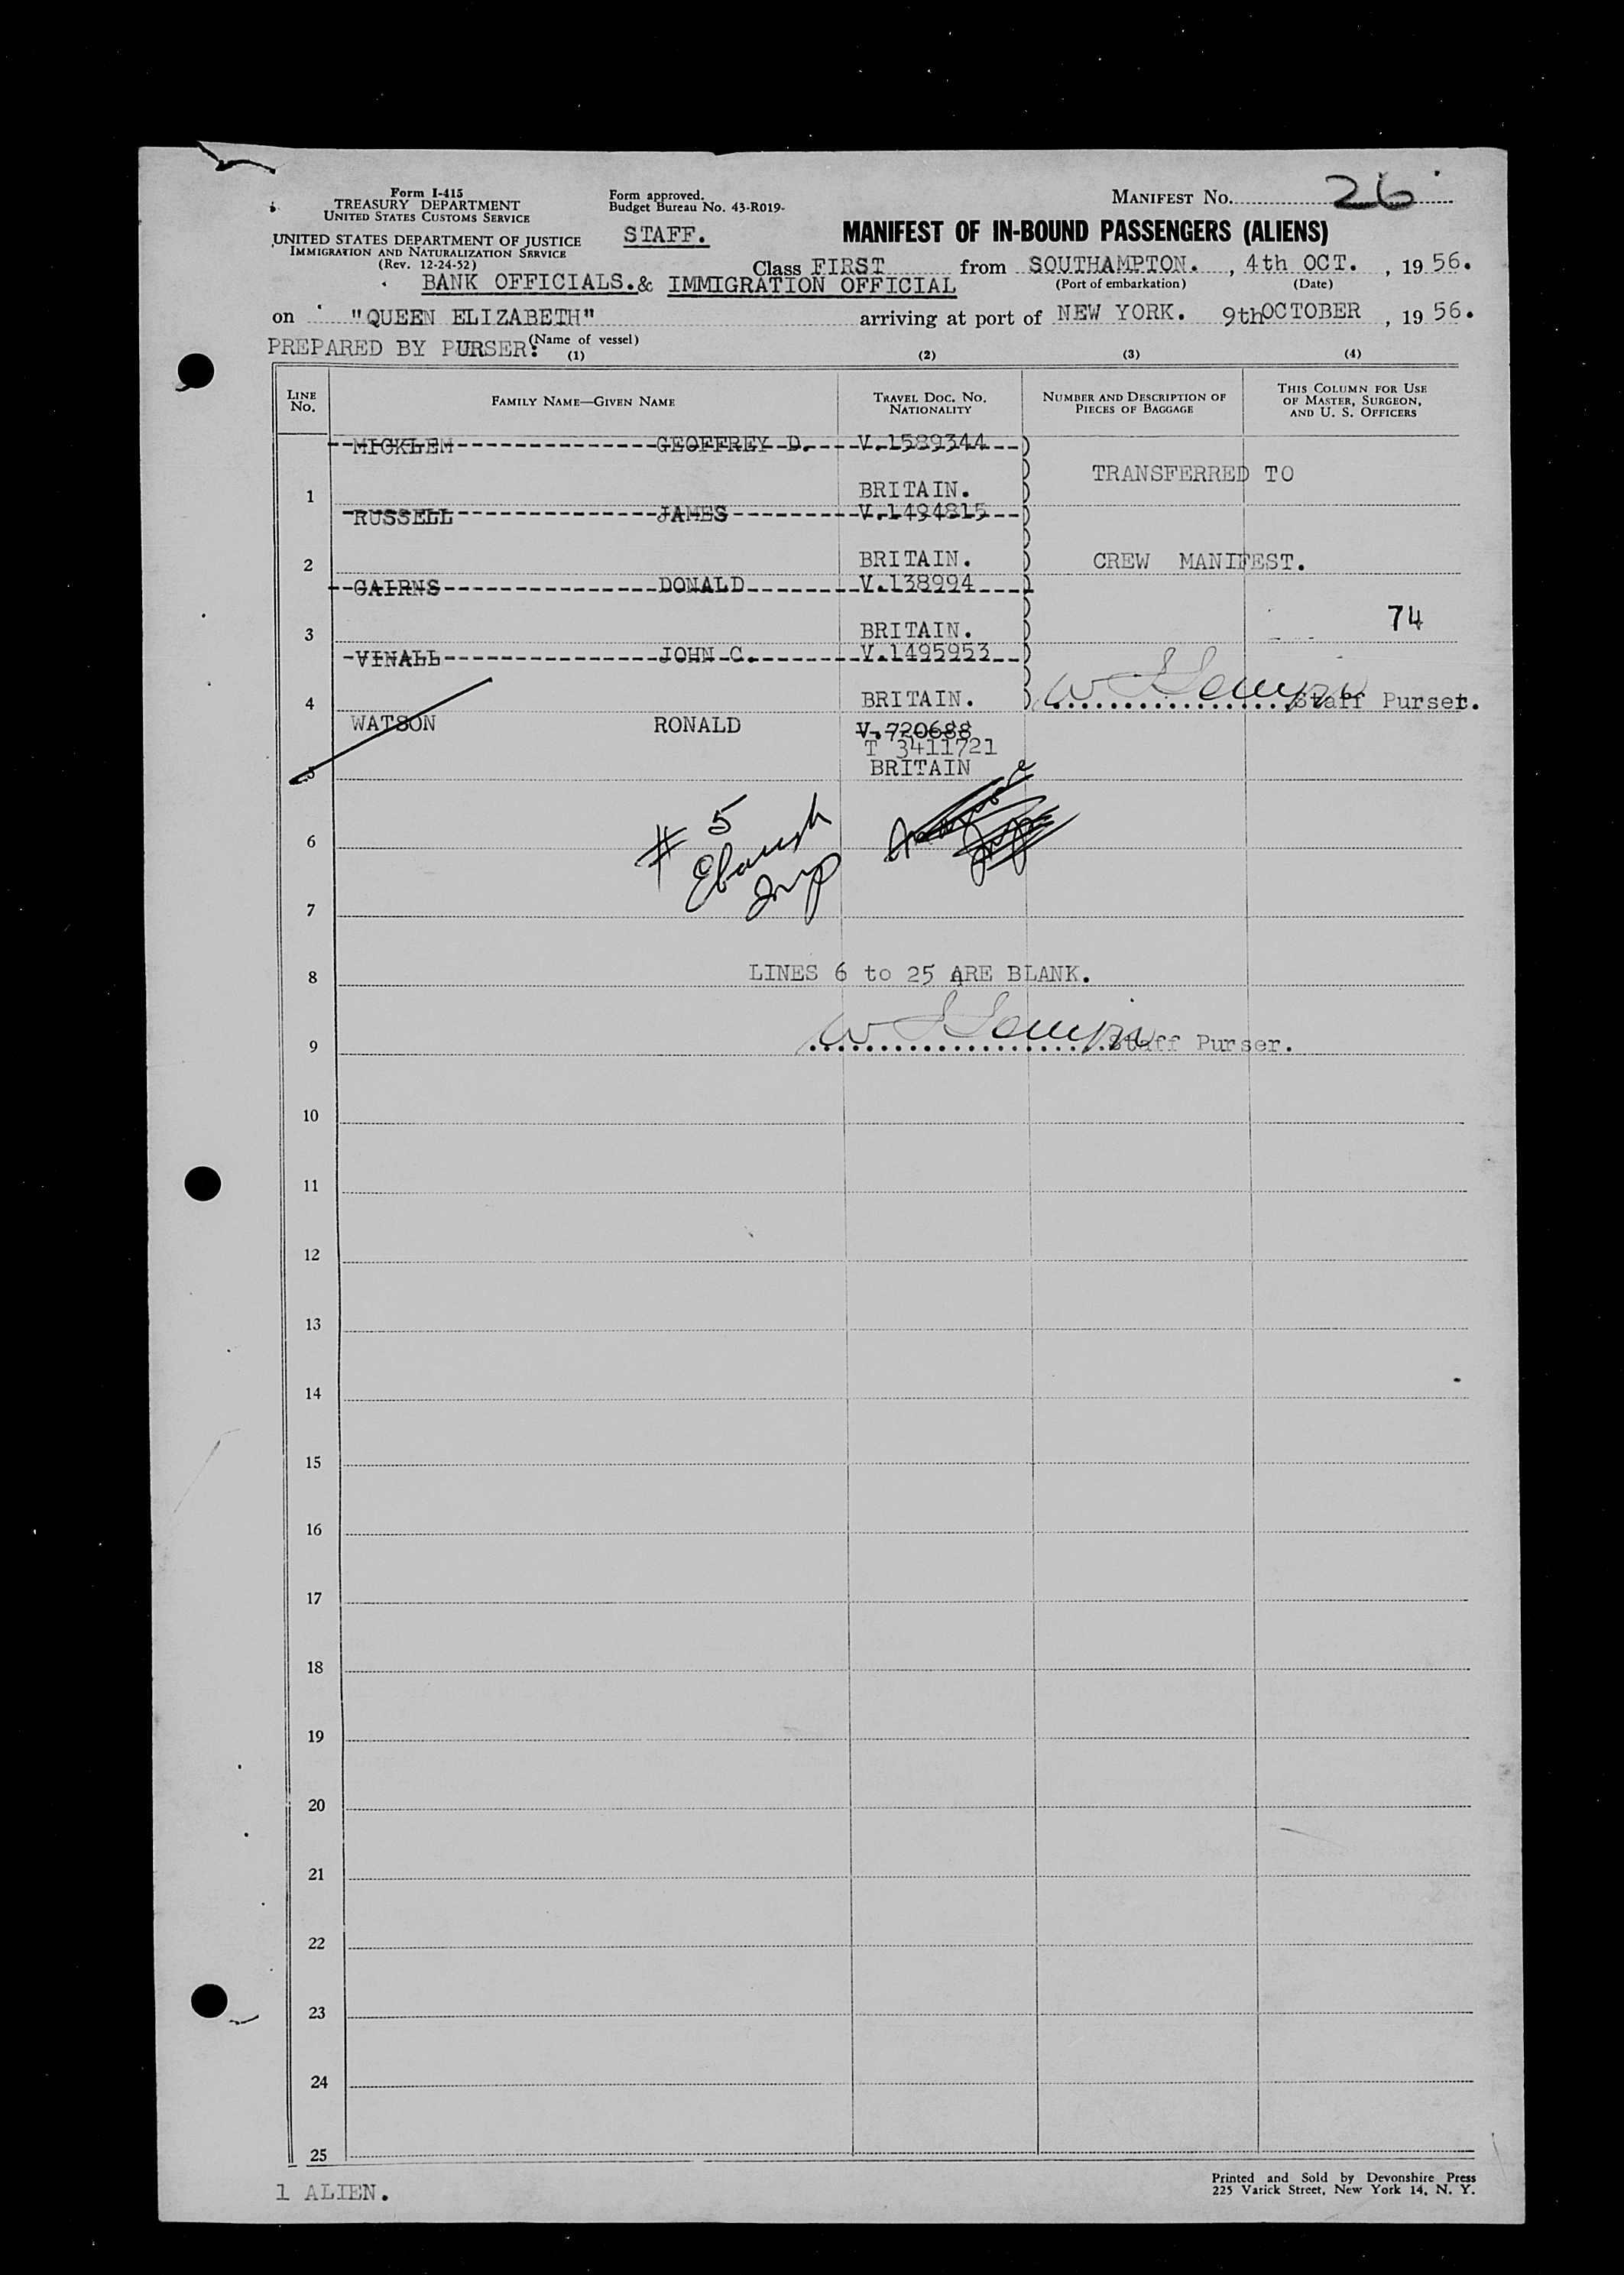 Form I-415
TREASURY DEPARTMENT
UNITED STATES CUSTOMS SERVICE
UNITED STATES DEPARTMENT OF JUSTICE
IMMIGRATION AND NATURALIZATION SERVICE
(Rev. 12-24-52)
Form approved.
Budget Bureau No. 43-R019-
STAFF.
MANIFEST No. 26
MANIFEST OF IN-BOUND PASSENGERS (ALIENS)
Class FIRST from SOUTHAMPTON. , 4th OCT. , 19 56.
BANK OFFICIALS.& IMMIGRATION OFFICIAL (Port of embarkation) (Date)
on "QUEEN ELIZABETH" arriving at port of NEW YORK. 9thOCTOBER , 19 56.
PREPARED BY PURSER: (Name of vessel)
(1) (2) (3) (4)
LINE No. FAMILY NAME—GIVEN NAME TRAVEL DOC. NO. NATIONALITY NUMBER AND DESCRIPTION OF PIECES OF BAGGAGE THIS COLUMN FOR USE OF MASTER, SURGEON, AND U. S. OFFICERS
MICKLEM GEOFFREY D. V.1589344
TRANSFERRED TO
1 BRITAIN.
RUSSELL JAMES V.1494815
2 BRITAIN. CREW MANIFEST.
CAIRNS DONALD V.138994
74
3 BRITAIN.
VINALL JOHN C. V.1495953
4 BRITAIN. Staff Purser.
WATSON RONALD V.720688
T 3411721
5 BRITAIN
# 5
6
7
LINES 6 to 25 ARE BLANK.
8
9 Staff Purser.
10
11
12
13
14
15
16
17
18
19
20
21
22
23
24
25
1 ALIEN.
Printed and Sold by Devonshire Press
225 Varick Street, New York 14, N. Y.